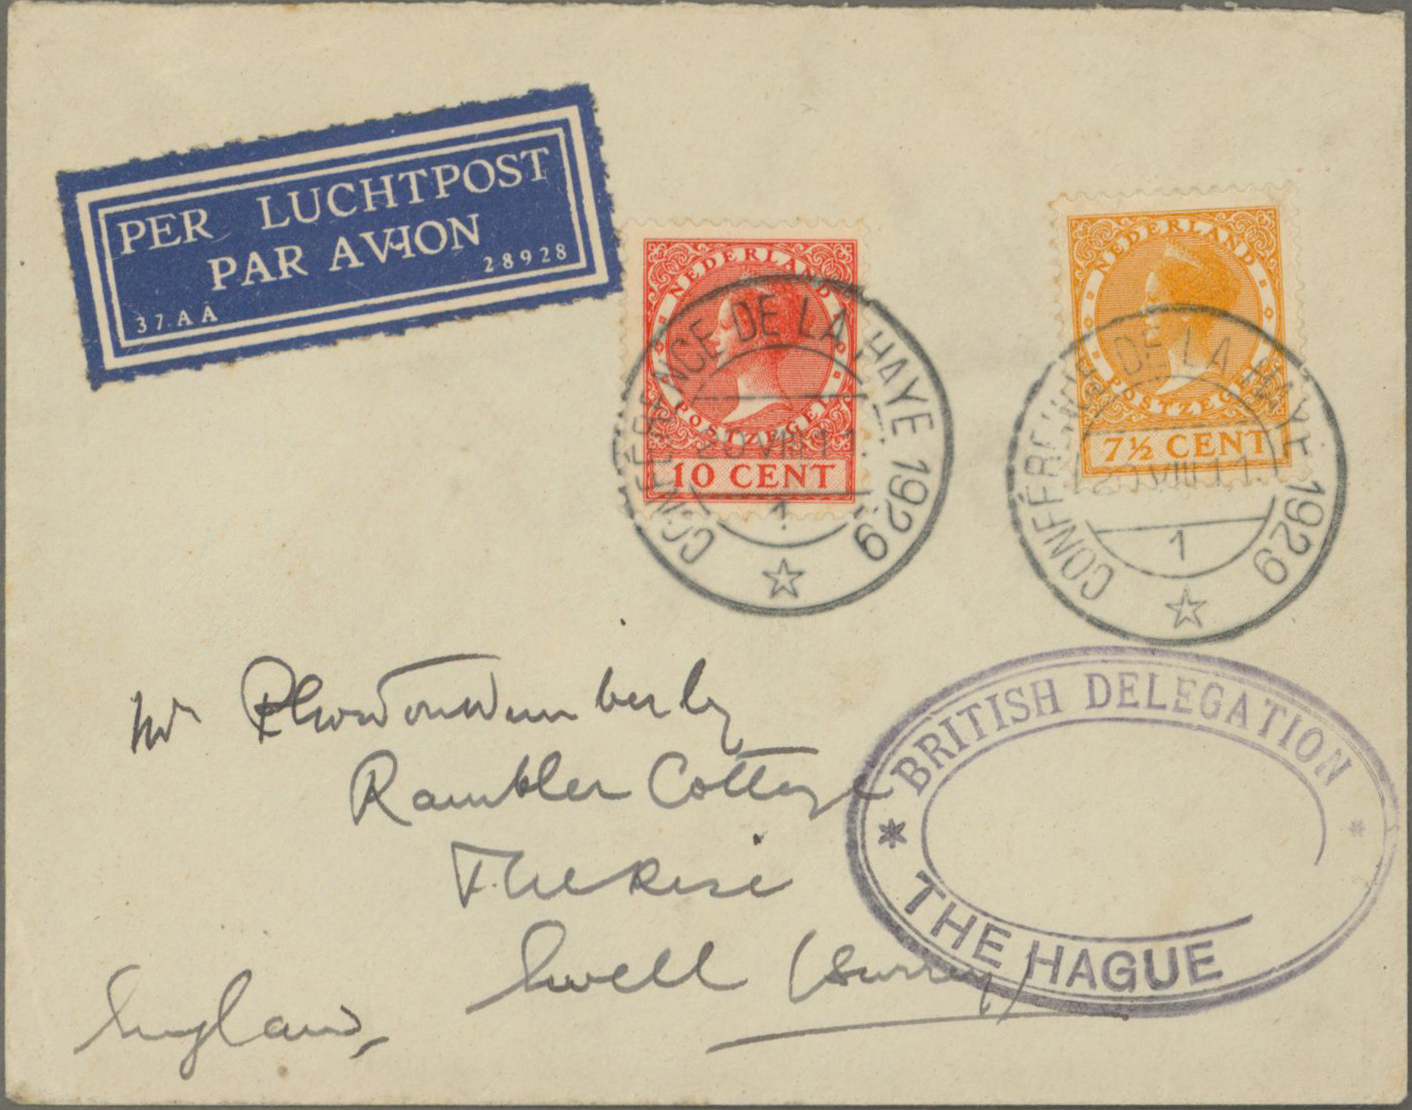 PER LUCHTPOST
PAR AVION
37.AA
28928
NEDERLAND
POSTZEGEL
10 CENT
CONFÉRENCE DE LA HAYE 1929
20 VIII 11
1
NEDERLAND
POSTZEGEL
7½ CENT
CONFÉRENCE DE LA HAYE 1929
20 VIII 11
1
BRITISH DELEGATION
THE HAGUE
Mr
Rambler Cottage
The Rise
Ewell (Surrey)
England